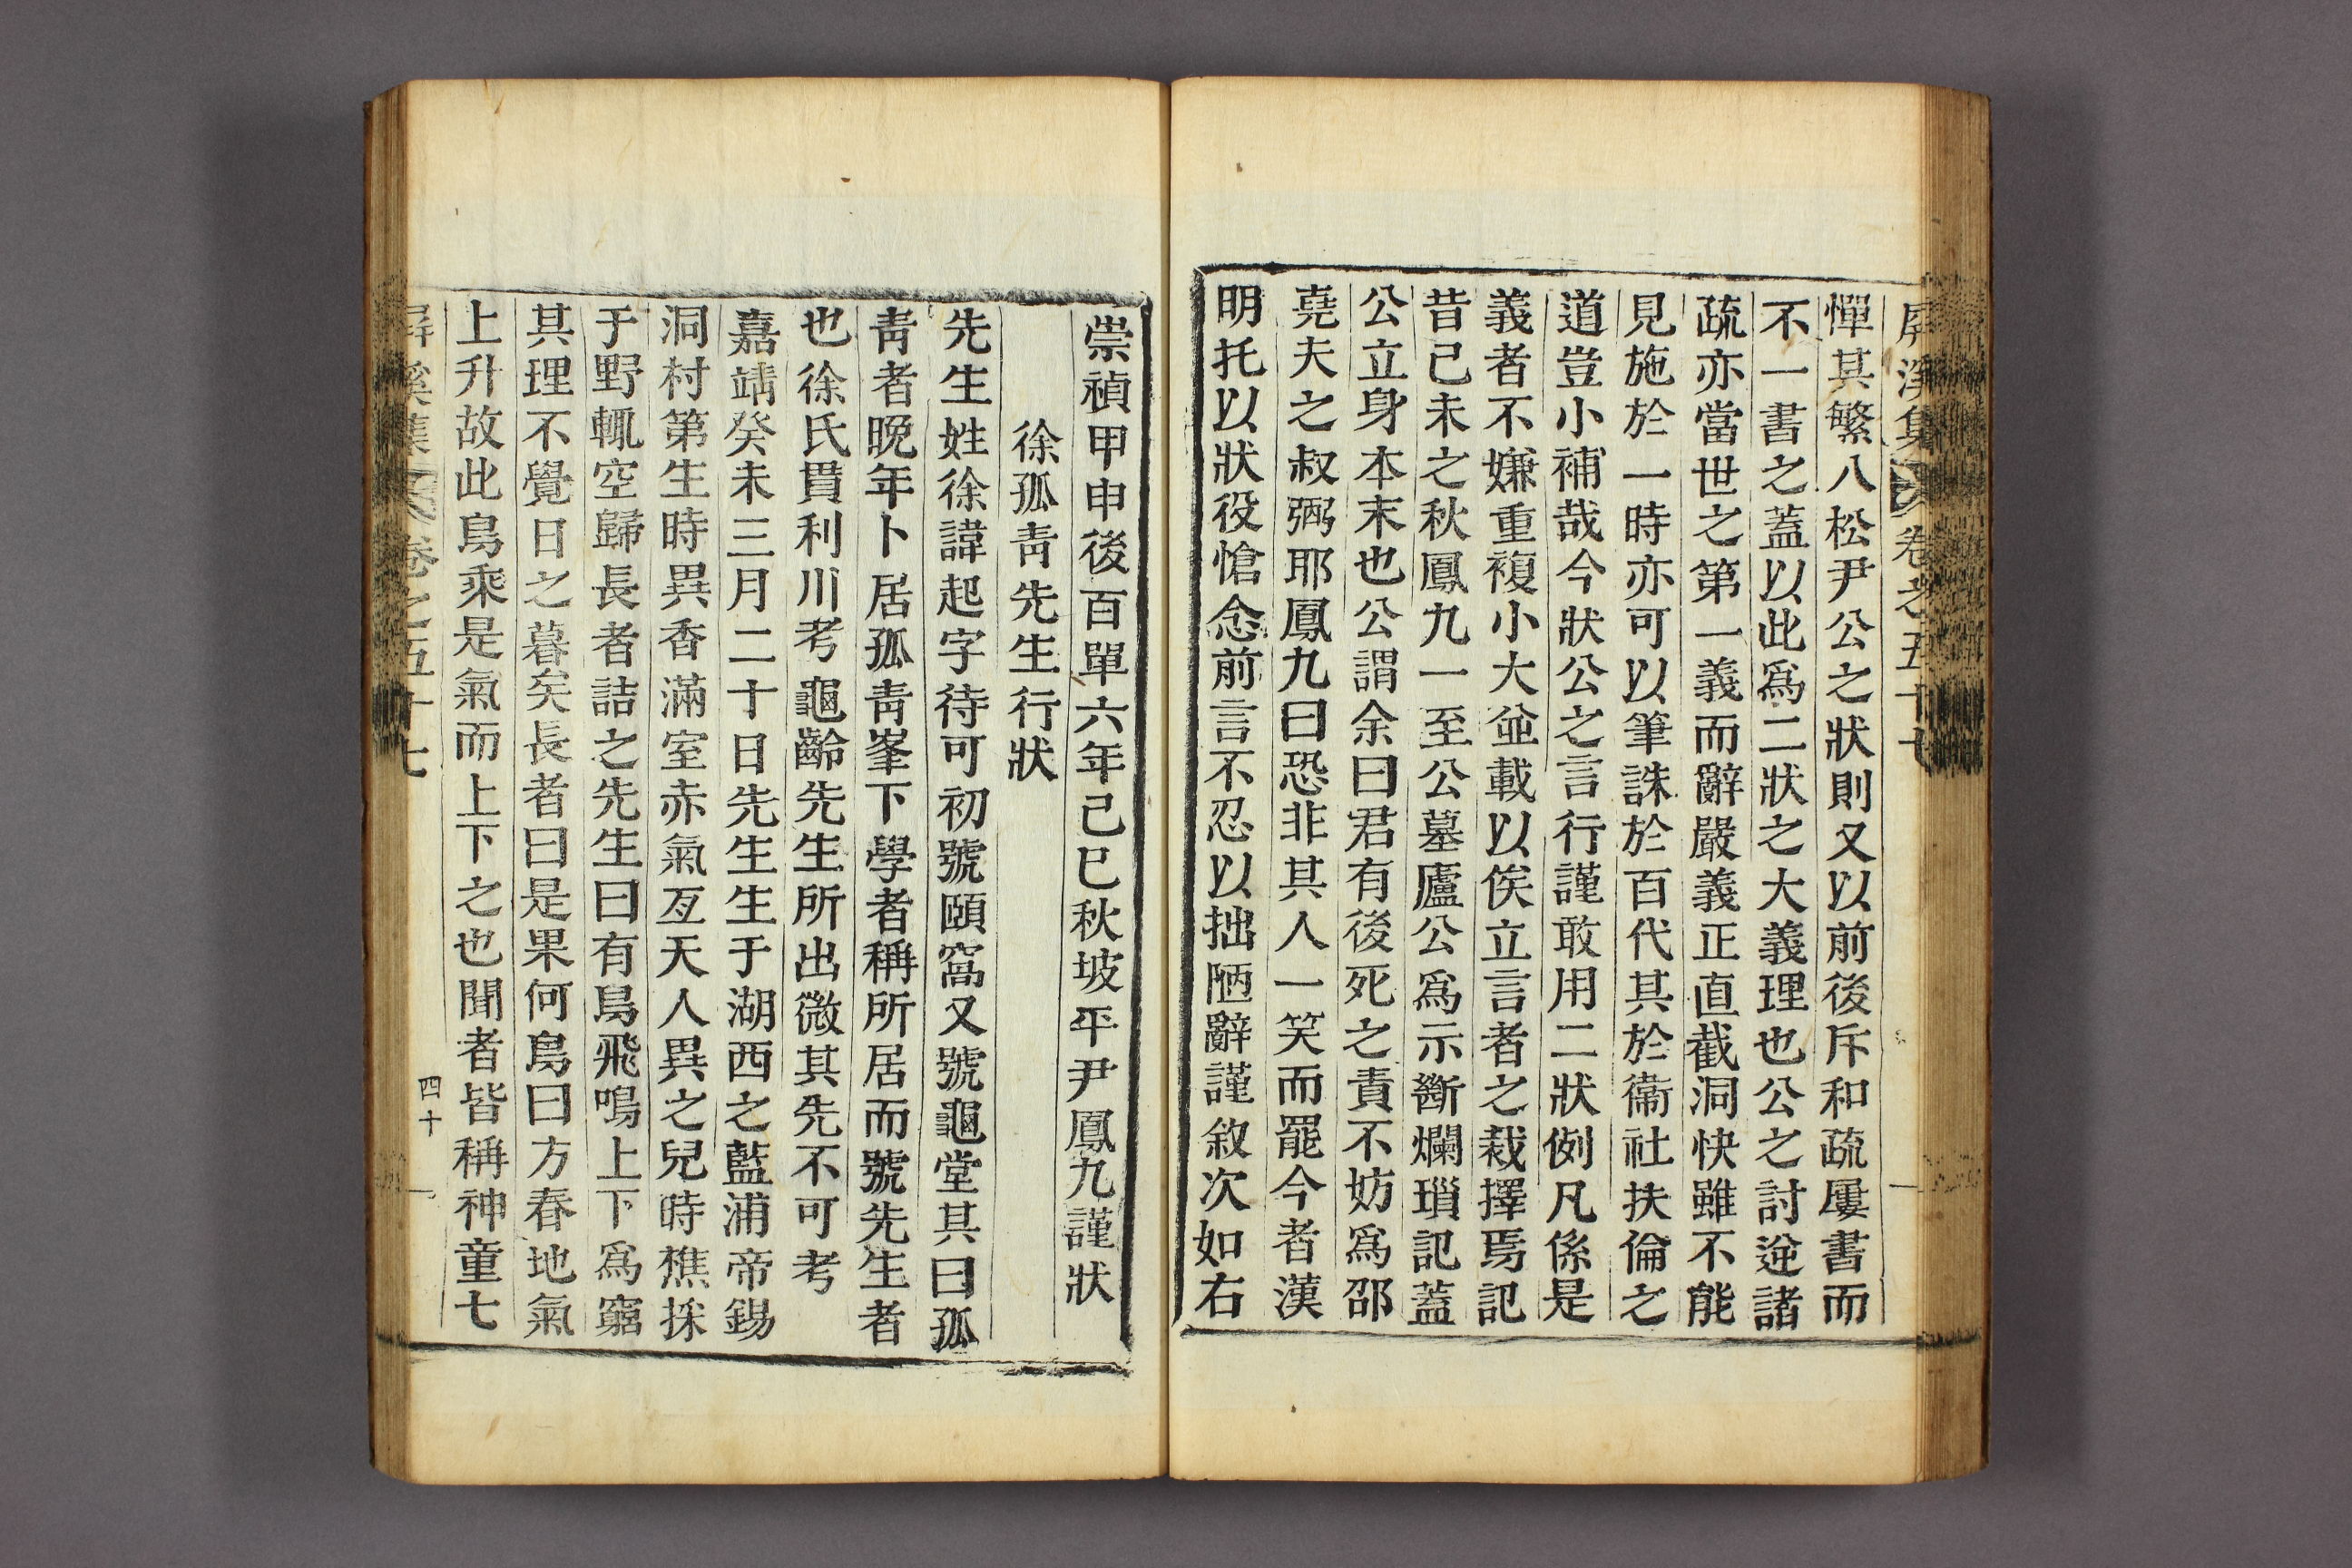 屏溪集 卷之五十七
憚其繁八松尹公之狀則又以前後斥和疏屢書而
不一書之蓋以此爲二狀之大義理也公之討逆諸
疏亦當世之第一義而辭嚴義正直截洞快雖不能
見施於一時亦可以筆誅於百代其於衛社扶倫之
道豈小補哉今狀公之言行謹敢用二狀例凡係是
義者不嫌重複小大並載以俟立言者之裁擇焉記
昔己未之秋鳳九一至公墓廬公爲示斷爛瑣記蓋
公立身本末也公謂余曰君有後死之責不妨爲邵
堯夫之叔弼耶鳳九曰恐非其人一笑而罷今者漢
明托以狀役愴念前言不忍以拙陋辭謹敘次如右
崇禎甲申後百單六年己巳秋坡平尹鳳九謹狀
徐孤靑先生行狀
先生姓徐諱起字待可初號頤窩又號龜堂其曰孤
靑者晩年卜居孤靑峯下學者稱所居而號先生者
也徐氏貫利川考龜齡先生所出微其先不可考
嘉靖癸未三月二十日先生生于湖西之藍浦帝錫
洞村第生時異香滿室赤氣亙天人異之兒時樵採
于野輒空歸長者詰之先生曰有鳥飛鳴上下爲窮
其理不覺日之暮矣長者曰是果何鳥曰方春地氣
上升故此鳥乘是氣而上下之也聞者皆稱神童七
屏溪集 卷之五十七
四十